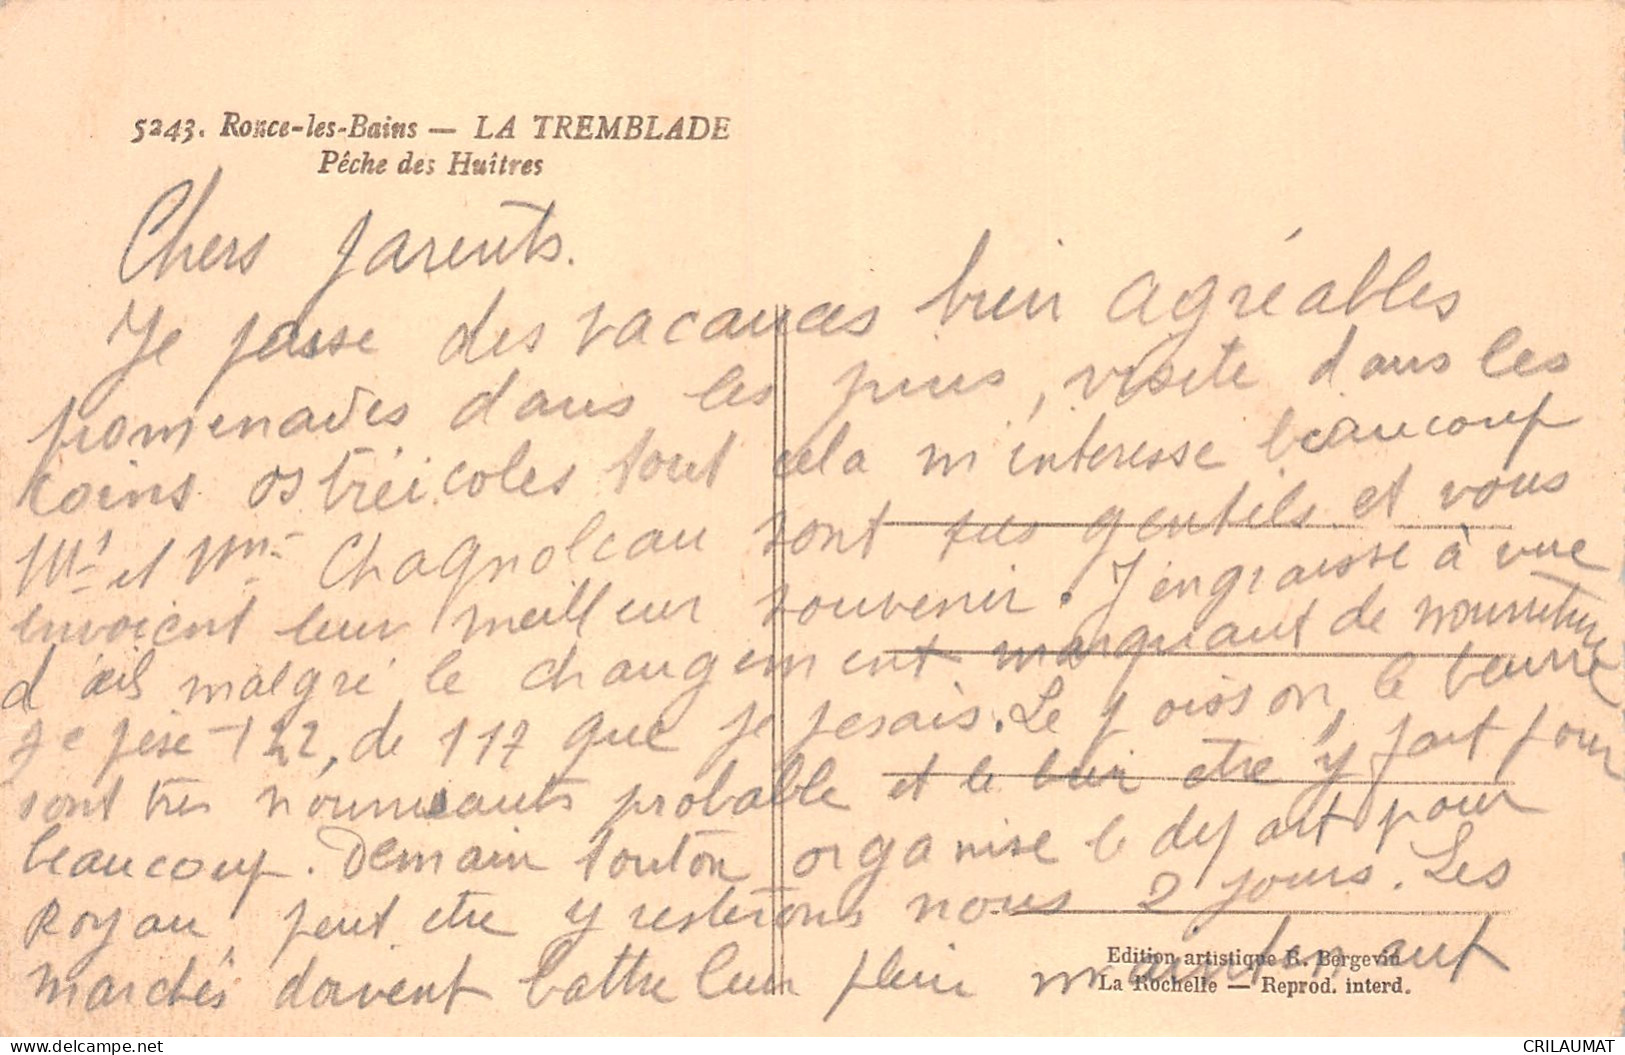 5243. Ronce-les-Bains — LA TREMBLADE
Pêche des Huîtres
Chers parents.
Je passe des vacances bien agréables
promenades dans les pins, visite dans les
coins ostréicoles tout cela m'interesse beaucoup
Mr et Mme Chagnoleau sont très gentils et vous
envoient leur meilleur souvenir. J'engraisse à vue
d'œil malgré le changement marquant de nourriture
je pèse 122, de 117 que je pesais. Le poisson, le beurre
sont très nourrissants probable et le bien etre y fait pour
beaucoup. Demain tonton organise le depart pour
Royan, peut etre y resterons nous 2 jours. Les
marchés doivent battre leur plein maintenant
Edition artistique R. Bergevin
La Rochelle — Reprod. interd.
www.delcampe.net
CRILAUMAT